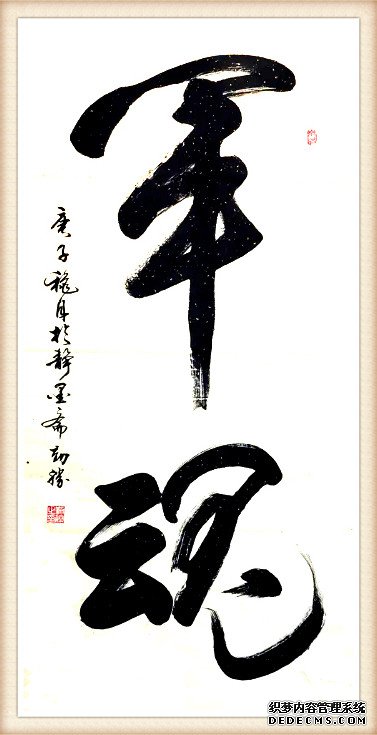 军魂
庚子穐月于静墨斋
织梦内容管理系统
DEDECMS.COM